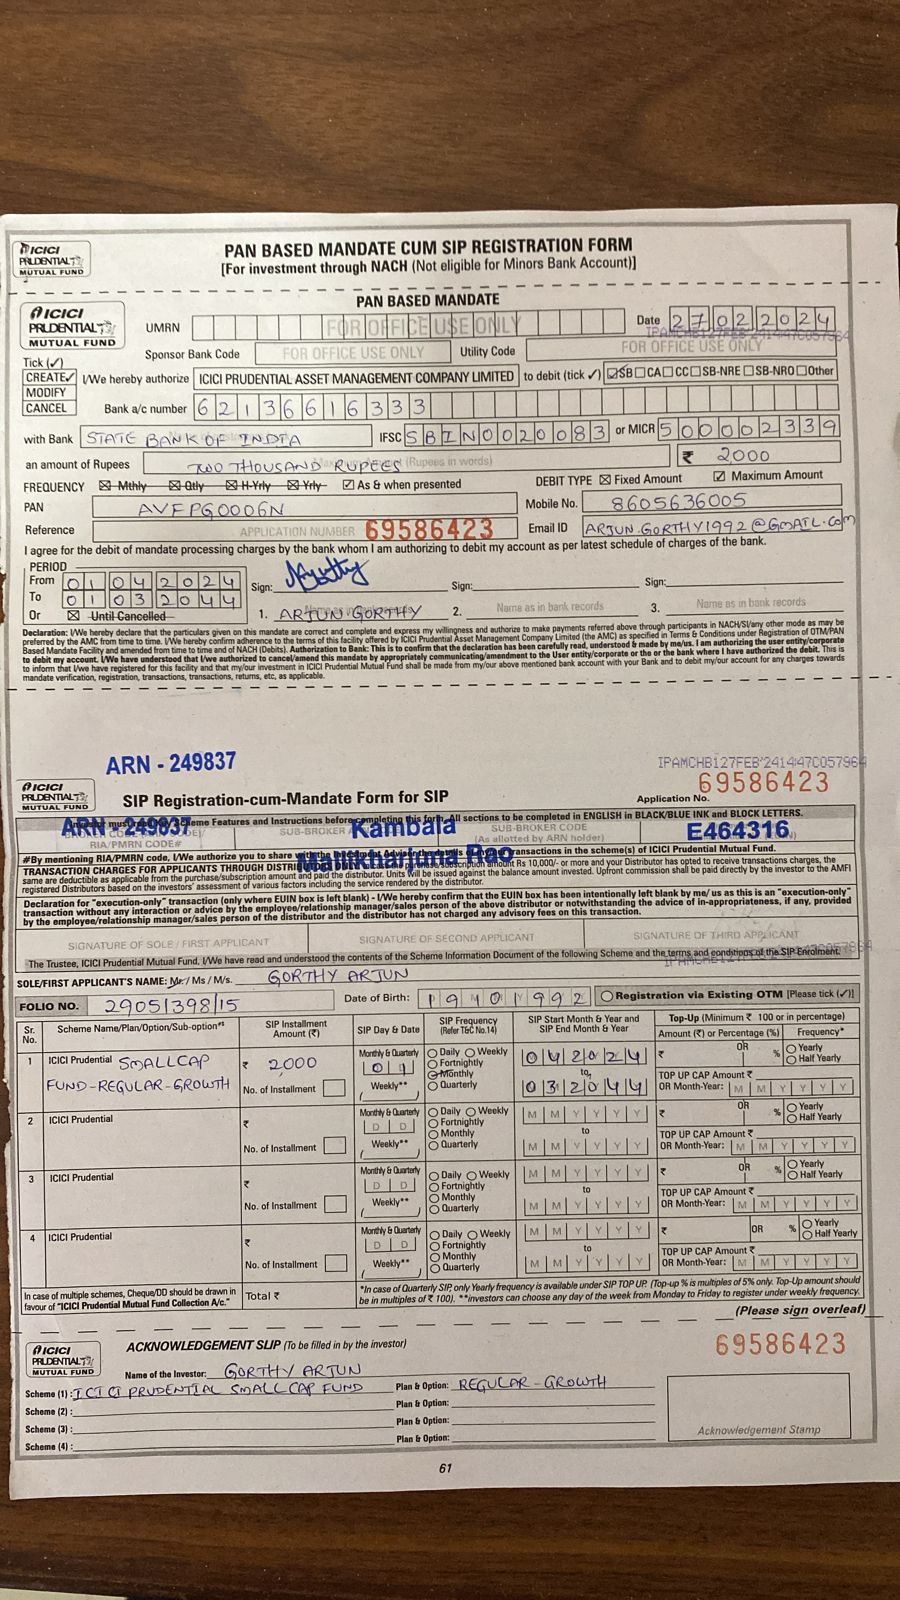 ICICI
PRUDENTIAL
MUTUAL FUND
PAN BASED MANDATE CUM SIP REGISTRATION FORM
[For investment through NACH (Not eligible for Minors Bank Account)]
PAN BASED MANDATE
ICICI
PRUDENTIAL
MUTUAL FUND
UMRN FOR OFFICE USE ONLY Date 27022024
IPAMCHB127FEB'2414:47C057964
Sponsor Bank Code FOR OFFICE USE ONLY Utility Code FOR OFFICE USE ONLY
Tick (✓)
CREATE✓ I/We hereby authorize ICICI PRUDENTIAL ASSET MANAGEMENT COMPANY LIMITED to debit (tick ✓) ☑SB ☐CA ☐CC ☐SB-NRE ☐SB-NRO ☐Other
MODIFY
CANCEL Bank a/c number 62136616333
with Bank STATE BANK OF INDIA IFSC SBIN0020083 or MICR 500002339
an amount of Rupees TWO THOUSAND RUPEES (Rupees in words) ₹ 2000
FREQUENCY ☒ Mthly ☒ Qtly ☒ H-Yrly ☒ Yrly ☑ As & when presented DEBIT TYPE ☒ Fixed Amount ☑ Maximum Amount
PAN AVFPG0006N Mobile No. 8605636005
Reference APPLICATION NUMBER 69586423 Email ID ARJUN.GORTHY1992@GMAIL.COM
I agree for the debit of mandate processing charges by the bank whom I am authorizing to debit my account as per latest schedule of charges of the bank.
PERIOD
From 01042024 Sign: Sign: Sign:
To 01032044
Or ☒ Until Cancelled 1. ARJUN GORTHY 2. Name as in bank records 3. Name as in bank records
Declaration: I/We hereby declare that the particulars given on this mandate are correct and complete and express my willingness and authorize to make payments referred above through participants in NACH/SI/any other mode as may be
preferred by the AMC from time to time. I/We hereby confirm adherence to the terms of this facility offered by ICICI Prudential Asset Management Company Limited (the AMC) as specified in Terms & Conditions under Registration of OTM/PAN
Based Mandate Facility and amended from time to time and of NACH (Debits). Authorization to Bank: This is to confirm that the declaration has been carefully read, understood & made by me/us. I am authorizing the user entity/corporate
to debit my account. I/We have understood that I/we authorized to cancel/amend this mandate by appropriately communicating/amendment to the User entity/corporate or the or the bank where I have authorized the debit. This is
to inform that I/we have registered for this facility and that my/our investment in ICICI Prudential Mutual Fund shall be made from my/our above mentioned bank account with your Bank and to debit my/our account for any charges towards
mandate verification, registration, transactions, transactions, returns, etc, as applicable.
ARN - 249837
IPAMCHB127FEB'2414:47C057964
ICICI
PRUDENTIAL
MUTUAL FUND
SIP Registration-cum-Mandate Form for SIP Application No. 69586423
Investor must read Scheme Features and Instructions before completing this form. All sections to be completed in ENGLISH in BLACK/BLUE INK and BLOCK LETTERS.
ARN - 249837 Kambala Mallikharjuna Rao E464316
RIA/PMRN CODE# SUB-BROKER SUB-BROKER CODE
(As allotted by ARN holder)
#By mentioning RIA/PMRN code, I/We authorize you to share with the Investment Adviser the details of my/our transactions in the scheme(s) of ICICI Prudential Mutual Fund.
TRANSACTION CHARGES FOR APPLICATIONS THROUGH purchase/subscription amount Rs 10,000/- or more and your Distributor has opted to receive transactions charges, the
same are deductible as applicable from the purchase/subscription amount and paid the distributor. Units will be issued against the balance amount invested. Upfront commission shall be paid directly by the investor to the AMFI
registered Distributors based on the investors' assessment of various factors including the service rendered by the distributor.
Declaration for "execution-only" transaction (only where EUIN box is left blank) - I/We hereby confirm that the EUIN box has been intentionally left blank by me/us as this is an "execution-only"
transaction without any interaction or advice by the employee/relationship manager/sales person of the above distributor or notwithstanding the advice of in-appropriateness, if any, provided
by the employee/relationship manager/sales person of the distributor and the distributor has not charged any advisory fees on this transaction.
SIGNATURE OF SOLE / FIRST APPLICANT SIGNATURE OF SECOND APPLICANT SIGNATURE OF THIRD APPLICANT
The Trustee, ICICI Prudential Mutual Fund, I/We have read and understood the contents of the Scheme Information Document of the following Scheme and the terms and conditions of the SIP Enrolment.
SOLE/FIRST APPLICANT'S NAME: Mr./ Ms / M/s. GORTHY ARJUN
FOLIO NO. 29051398/15 Date of Birth: 19401992 Registration via Existing OTM [Please tick (✓)]
Sr. No. Scheme Name/Plan/Option/Sub-option SIP Installment Amount (₹) SIP Day & Date SIP Frequency (Refer T&C No.14) SIP Start Month & Year and SIP End Month & Year Top-Up (Minimum ₹ 100 or in percentage)
Amount (₹) or Percentage (%) Frequency*
1 ICICI Prudential SMALLCAP FUND-REGULAR-GROWTH ₹ 2000 No. of Installment Monthly & Quarterly 01 Weekly** Daily Weekly Fortnightly Monthly Quarterly 042024 to 032044 ₹ OR % Yearly Half Yearly TOP UP CAP Amount ₹ OR Month-Year: M M Y Y Y Y
2 ICICI Prudential ₹ No. of Installment Monthly & Quarterly D D Weekly** Daily Weekly Fortnightly Monthly Quarterly M M Y Y Y Y to M M Y Y Y Y ₹ OR % Yearly Half Yearly TOP UP CAP Amount ₹ OR Month-Year: M M Y Y Y Y
3 ICICI Prudential ₹ No. of Installment Monthly & Quarterly D D Weekly** Daily Weekly Fortnightly Monthly Quarterly M M Y Y Y Y to M M Y Y Y Y ₹ OR % Yearly Half Yearly TOP UP CAP Amount ₹ OR Month-Year: M M Y Y Y Y
4 ICICI Prudential ₹ No. of Installment Monthly & Quarterly D D Weekly** Daily Weekly Fortnightly Monthly Quarterly M M Y Y Y Y to M M Y Y Y Y ₹ OR % Yearly Half Yearly TOP UP CAP Amount ₹ OR Month-Year: M M Y Y Y Y
In case of multiple schemes, Cheque/DD should be drawn in favour of "ICICI Prudential Mutual Fund Collection A/c." Total ₹
*In case of Quarterly SIP, only Yearly frequency is available under SIP TOP UP. (Top-up % is multiples of 5% only. Top-Up amount should
be in multiples of ₹ 100). **investors can choose any day of the week from Monday to Friday to register under weekly frequency.
(Please sign overleaf)
ICICI
PRUDENTIAL
MUTUAL FUND
ACKNOWLEDGEMENT SLIP (To be filled in by the investor) 69586423
Name of the Investor: GORTHY ARJUN
Scheme (1) : ICICI PRUDENTIAL SMALLCAP FUND Plan & Option: REGULAR - GROWTH
Scheme (2) : Plan & Option:
Scheme (3) : Plan & Option:
Scheme (4) : Plan & Option:
Acknowledgement Stamp
61